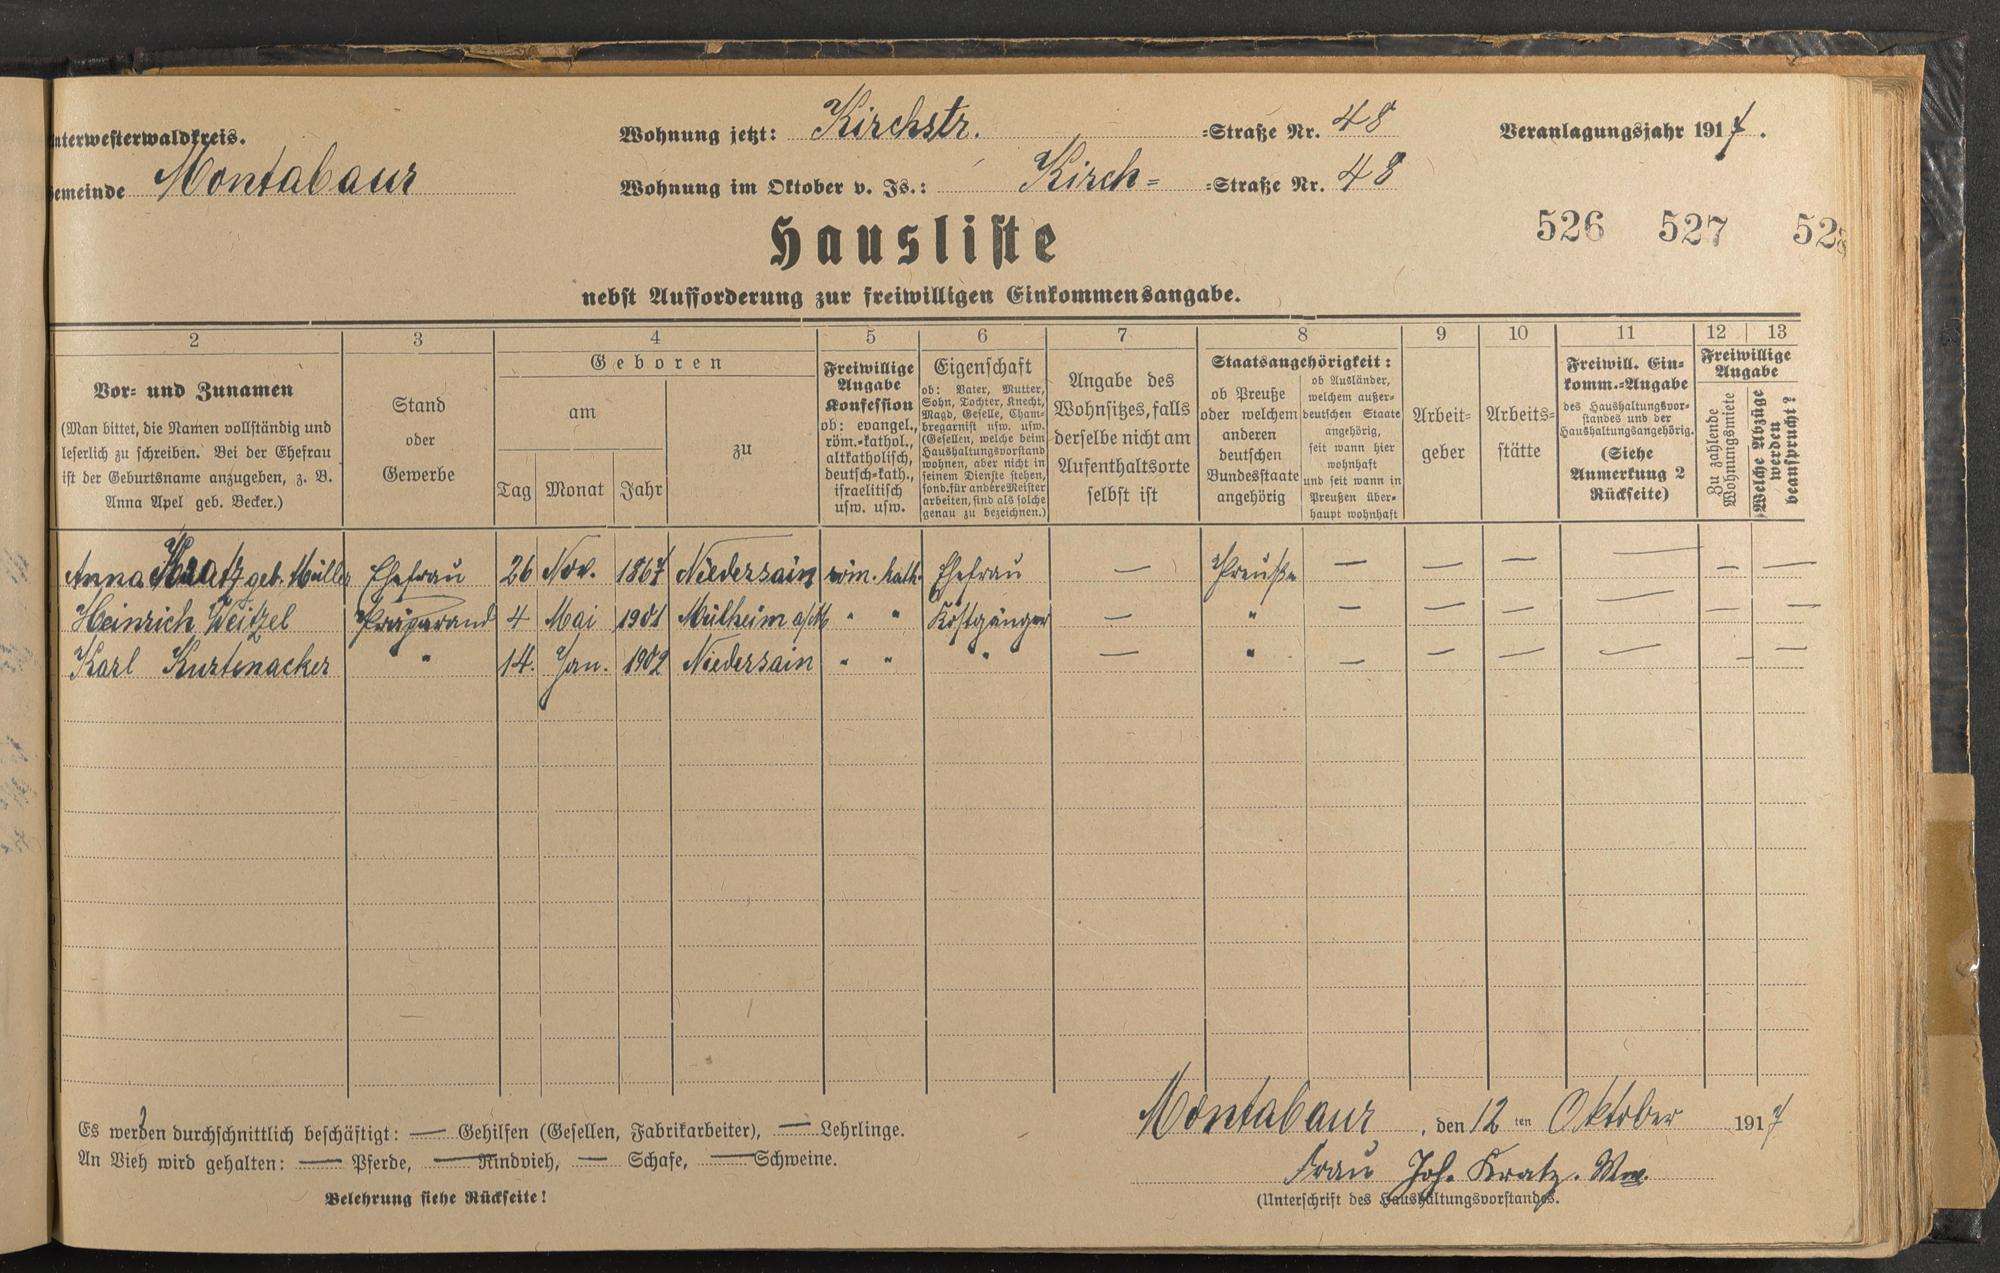 nterwesterwaldkreis.
Wohnung jetzt: Kirchstr. =Straße Nr. 48
Veranlagungsjahr 1917.
emeinde Montabaur
Wohnung im Oktober v. Js.: Kirch= =Straße Nr. 48
526 527 528
Hausliste
nebst Aufforderung zur freiwilligen Einkommensangabe.
2 3 4 5 6 7 8 9 10 11 12 13
Vor= und Zunamen
(Man bittet, die Namen vollständig und
leserlich zu schreiben. Bei der Ehefrau
ist der Geburtsname anzugeben, z. B.
Anna Apel geb. Becker.)
Stand
oder
Gewerbe
Geboren
am
Tag Monat Jahr
zu
Freiwillige
Angabe
Konfession
ob: evangel.,
röm.=kathol.,
altkatholisch,
deutsch=kath.,
israelitisch
usw. usw.
Eigenschaft
ob: Vater, Mutter,
Sohn, Tochter, Knecht,
Magd, Geselle, Cham=
bregarnist usw. usw.
(Gesellen, welche beim
Haushaltungsvorstand
wohnen, aber nicht in
seinem Dienste stehen,
sond. für andere Meister
arbeiten, sind als solche
genau zu bezeichnen.)
Angabe des
Wohnsitzes, falls
derselbe nicht am
Aufenthaltsorte
selbst ist
Staatsangehörigkeit:
ob Preuße
oder welchem
anderen
deutschen
Bundesstaate
angehörig
ob Ausländer,
welchem außer=
deutschen Staate
angehörig,
seit wann hier
wohnhaft
und seit wann in
Preußen über=
haupt wohnhaft
Arbeit=
geber
Arbeits=
stätte
Freiwill. Ein=
komm.=Angabe
des Haushaltungsvor=
standes und der
Haushaltungsangehörig.
(Siehe
Anmerkung 2
Rückseite)
Freiwillige
Angabe
Zu zahlende
Wohnungsmiete
Welche Abzüge
werden
beansprucht?
Anna Kratz geb. Müller Ehefrau 26 Nov. 1867 Niedersain röm. kath. Ehefrau — Preuße — — — — — —
Heinrich Weitzel Präparand 4 Mai 1901 Mülheim a/M " " Kostgänger — " — — — — — —
Karl Kurtenacker " 14. Jan. 1902 Niedersain " " " — " — — — — — —
Es werden durchschnittlich beschäftigt: — Gehilfen (Gesellen, Fabrikarbeiter), — Lehrlinge.
An Vieh wird gehalten: — Pferde, — Rindvieh, — Schafe, — Schweine.
Belehrung siehe Rückseite!
Montabaur, den 12ten Oktober 1917
Frau Joh. Kratz. Ww.
(Unterschrift des Haushaltungsvorstandes.